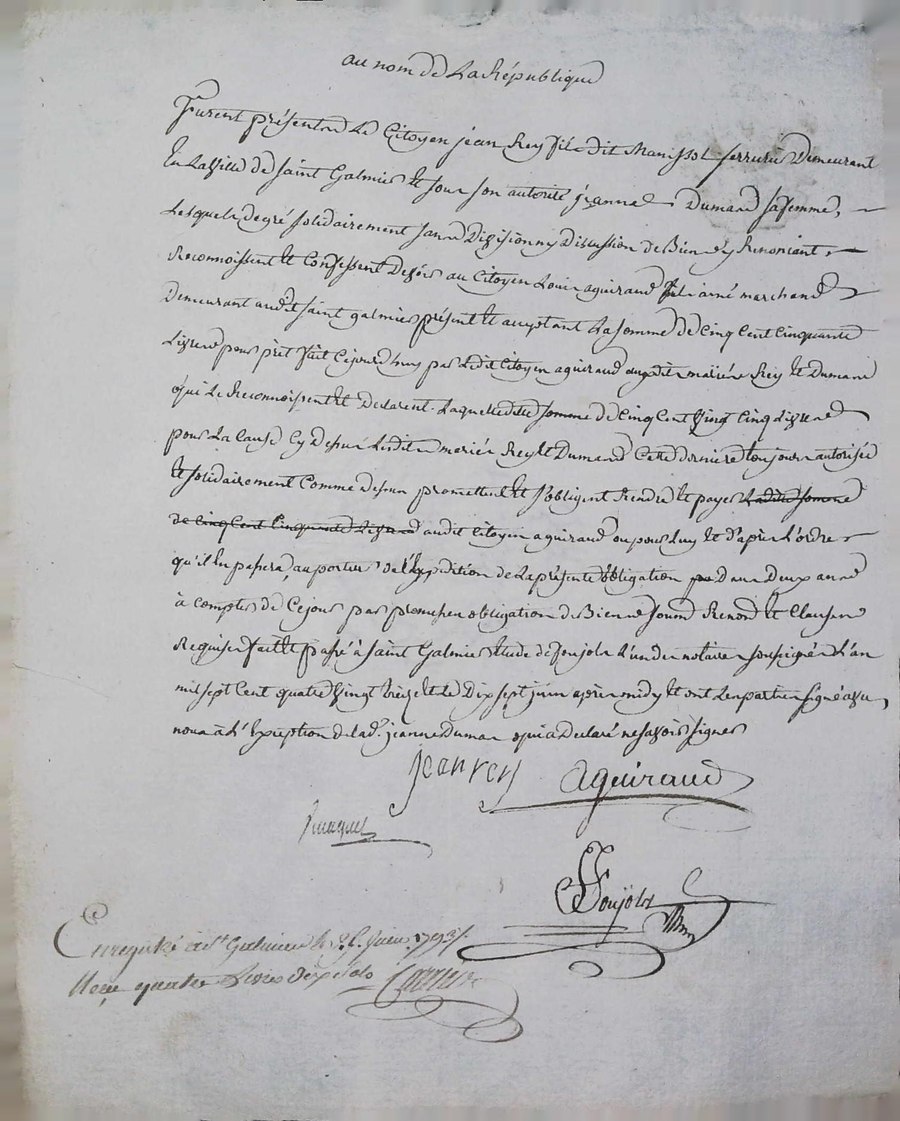 au nom de La République
Furent présents Le Citoyen jean Rey fils dit Manissol serrurier Demeurant
En La Ville de Saint Galmier Et sous son autorité jeanne Dumand sa femme,
Lesquels de gré solidairement sans Division ny Discussion de Biens y Renonciant
Reconnoissent Et Confessent Devoir au Citoyen Louis aguiraud fils aîné marchand
Demeurant audit saint galmier présent Et acceptant La somme de Cinq Cent Cinquante
Livres pour prêt fait Cejourd'huy par Ledit Citoyen aguiraud auxdits mariés Rey Et Dumand
qui Le Reconnoissent Et Declarent. Laquelle dite somme de Cinq Cent Vingt Cinq Livres
pour La Cause Cy Dessus Lesdits mariés Rey Et Dumand Cette dernière toujours autorisée
Et solidairement Comme dessus promettent Et s'obligent Rendre Et payer Ladite somme
de Cinq Cent Cinquante Livres audit Citoyen aguiraud ou pour Luy Et d'après L'ordre
qu'il En passera, au porteur de l'Expédition de La présente obligation dans Deux ans
à Compter de Ce jour par promesse obligation de Biens soums Renons Et Clauses
Requises fait Et passé à Saint Galmier Etude de foujols L'un des notaires soussignés L'an
mil sept Cent quatre Vingt treize Et Le Dix sept juin après midy Et ont Les parties signé avec
nous à L'Exception de lad. jeanne Dumand qui a Declaré ne savoir signer
jean rey aguiraud
foujols
Enregistré à St Galmier le juin 1793
Reçu quatre Livres dix sols